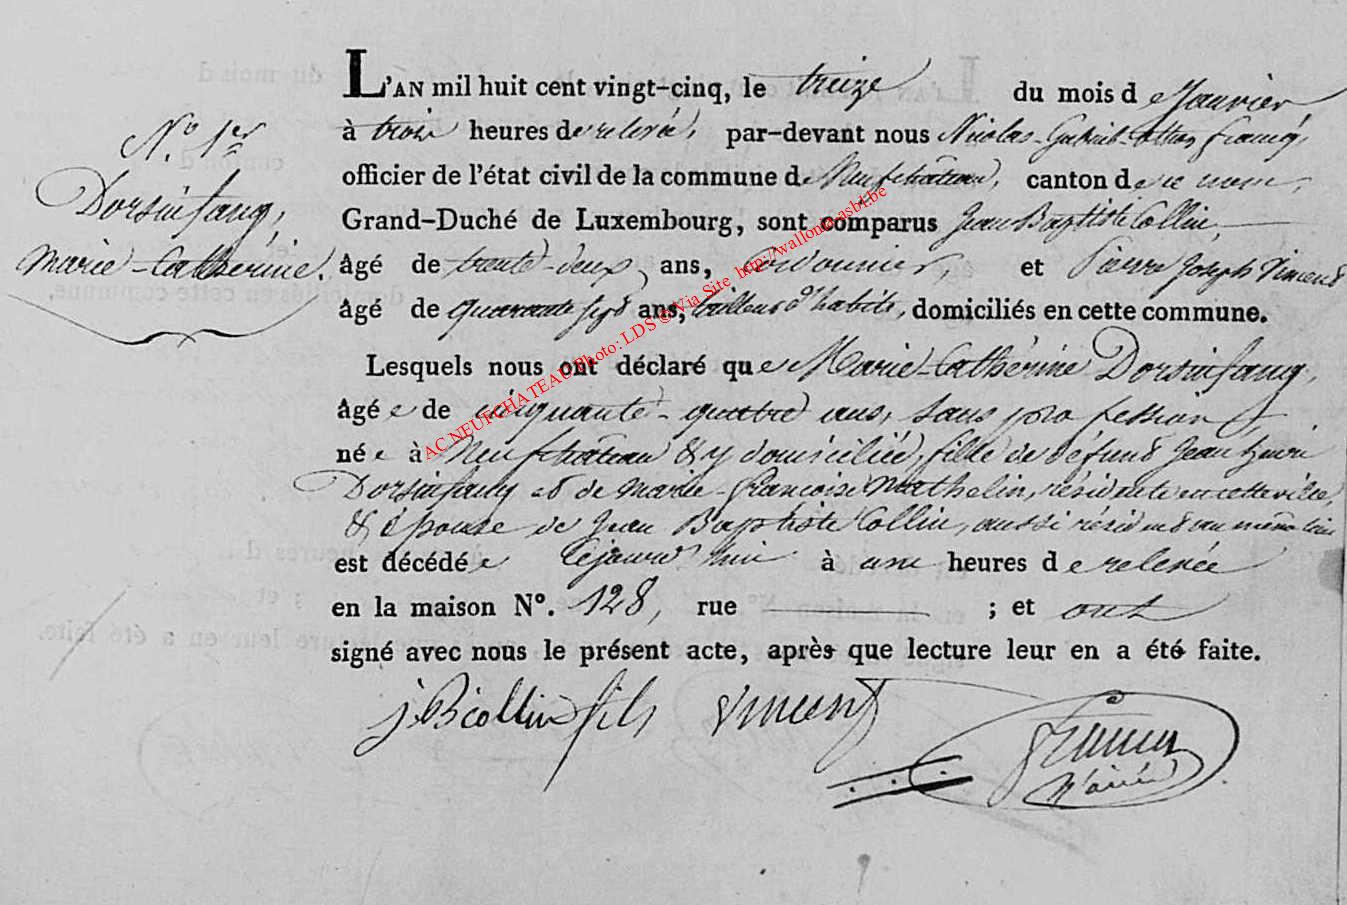 N.º 1er
Dorsinfang,
Marie-Cathérine.
L'AN mil huit cent vingt-cinq, le treize du mois de Janvier
à trois heures de relevée, par-devant nous Nicolas-Gabriel
officier de l'état civil de la commune de Neufchâteau, canton de ce nom,
Grand-Duché de Luxembourg, sont comparus Jean Baptiste Collin
âgé de trente-deux ans, cordonnier, et Pierre Joseph Vincent
âgé de quarante sept ans, tailleur d'habits, domiciliés en cette commune.
Lesquels nous ont déclaré que Marie-Cathérine Dorsinfang,
âgée de cinquante-quattre ans, sans profession,
née à Neufchâteau & y domiciliée, fille de défunt Jean henri
Dorsinfang et de Marie-françoise Mathelin, résidente en cette ville,
& épouse de Jean Baptiste Collin, aussi résident au même lieu
est décédée cejourd'hui à une heures de relevée
en la maison Nº. 128, rue ; et ont
signé avec nous le présent acte, après que lecture leur en a été faite.
j B collin fils Vincent
AC NEUFCHATEAU Photo: LDS © Via Site http://wallonia-asbl.be